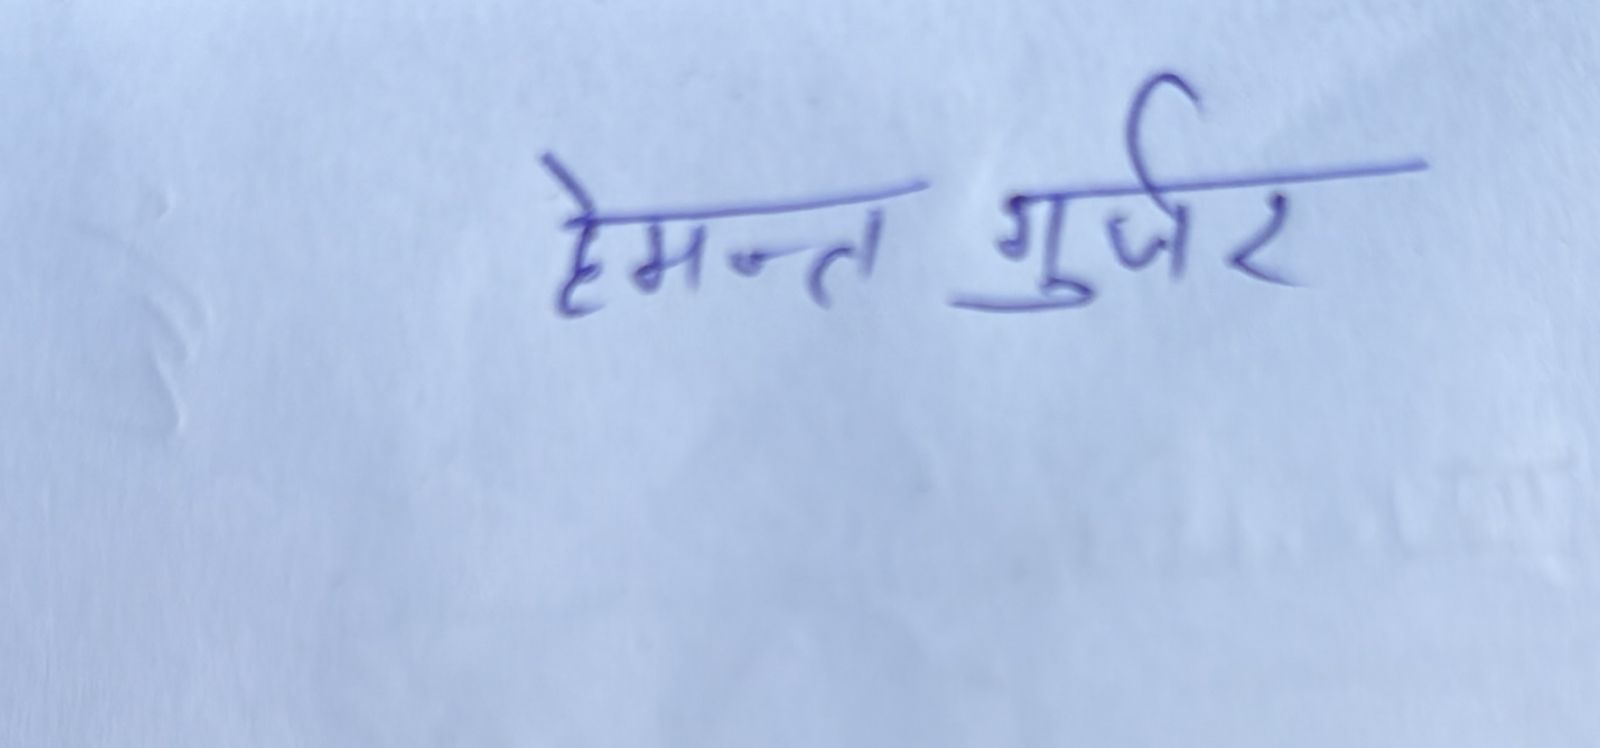 हेमन्त गुर्जर